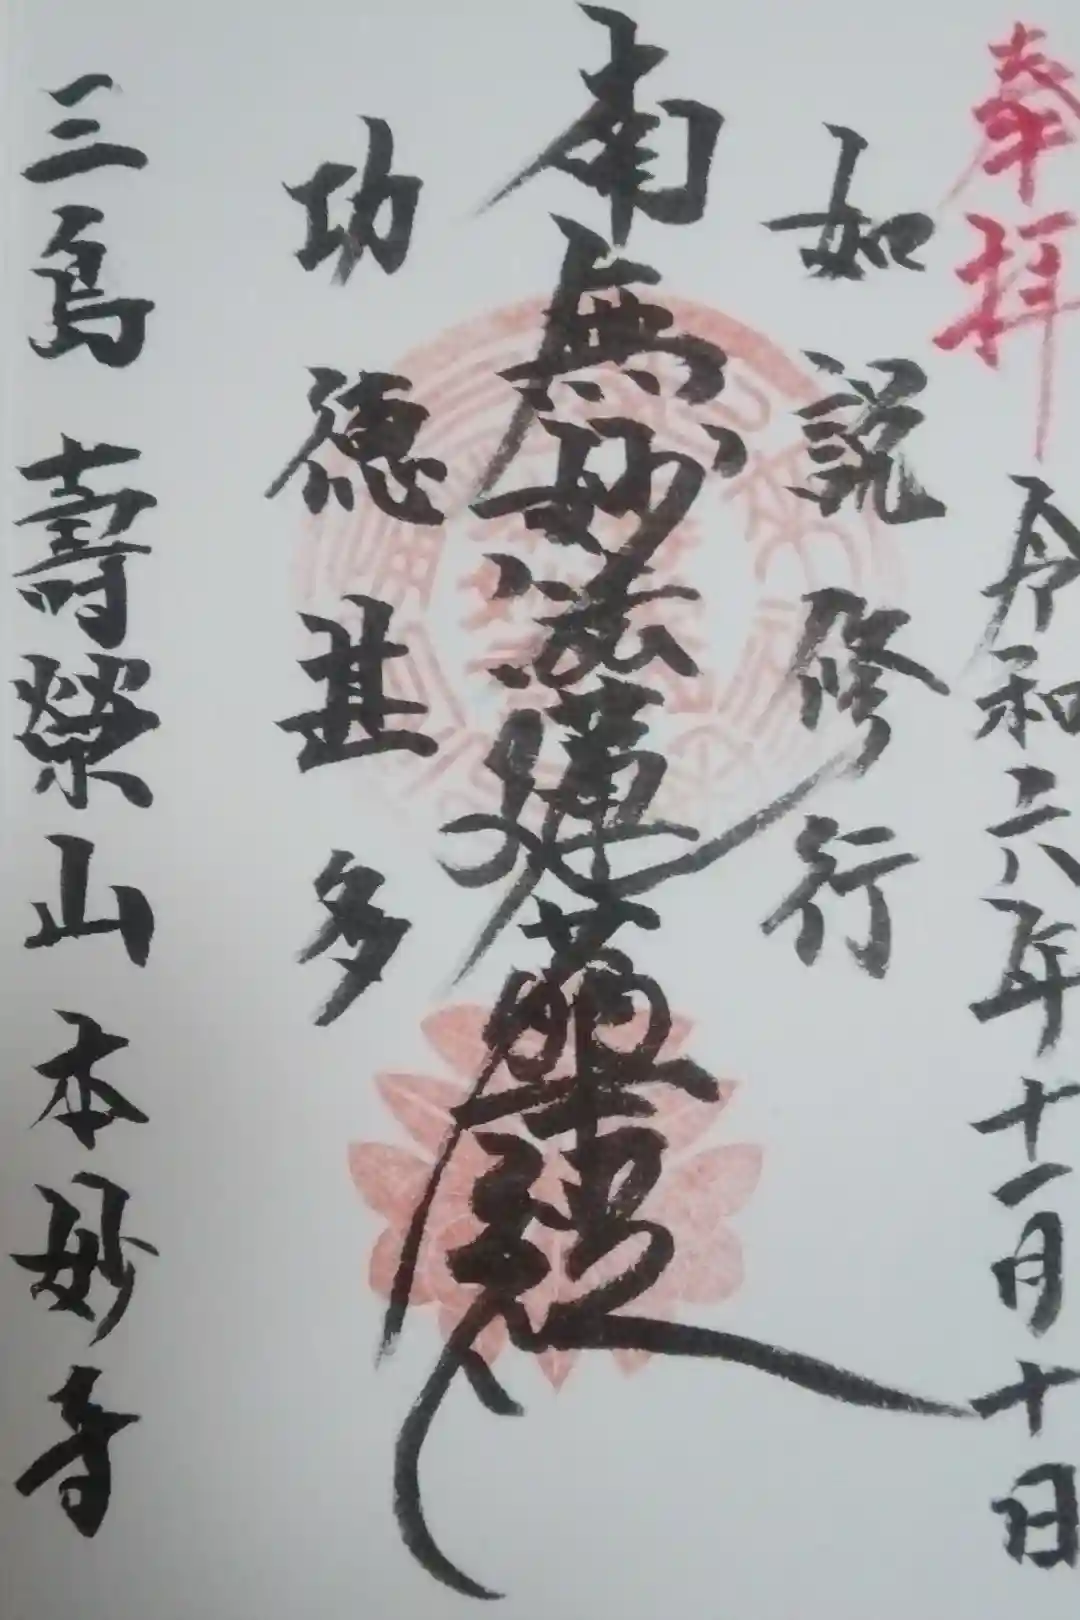 奉拝
令和六年十一月十日
如説修行
南無妙法蓮華經
功徳甚多
三島 壽榮山 本妙寺